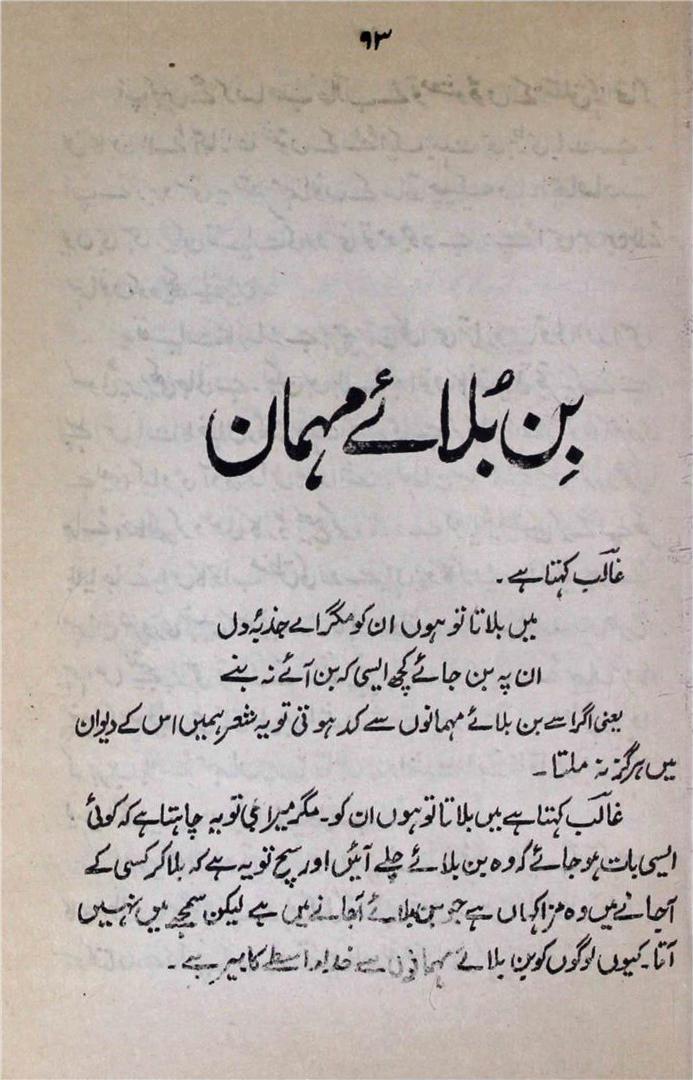 ۹۳
بِن بُلائے مہمان
غالب کہتا ہے۔
میں بلاتا تو ہوں ان کو مگر اے جذبۂ دل
ان پہ بن جائے کچھ ایسی کہ بن آئے نہ بنے
یعنی اگر اسے بن بلائے مہمانوں سے کد ہوتی تو یہ شعر ہمیں اس کے دیوان
میں ہرگز نہ ملتا۔
غالب کہتا ہے میں بلاتا تو ہوں ان کو۔ مگر میرا جی تو یہ چاہتا ہے کہ کوئی
ایسی بات ہو جائے کہ وہ بن بلائے چلے آئیں اور سچ تو یہ ہے کہ بلا کر کسی کے
آجانے میں وہ مزا کہاں ہے جو بن بلائے آجانے میں ہے لیکن سمجھ میں نہیں
آتا۔ کیوں لوگوں کو بن بلائے مہمانوں سے خدا واسطے کا بیر ہے۔